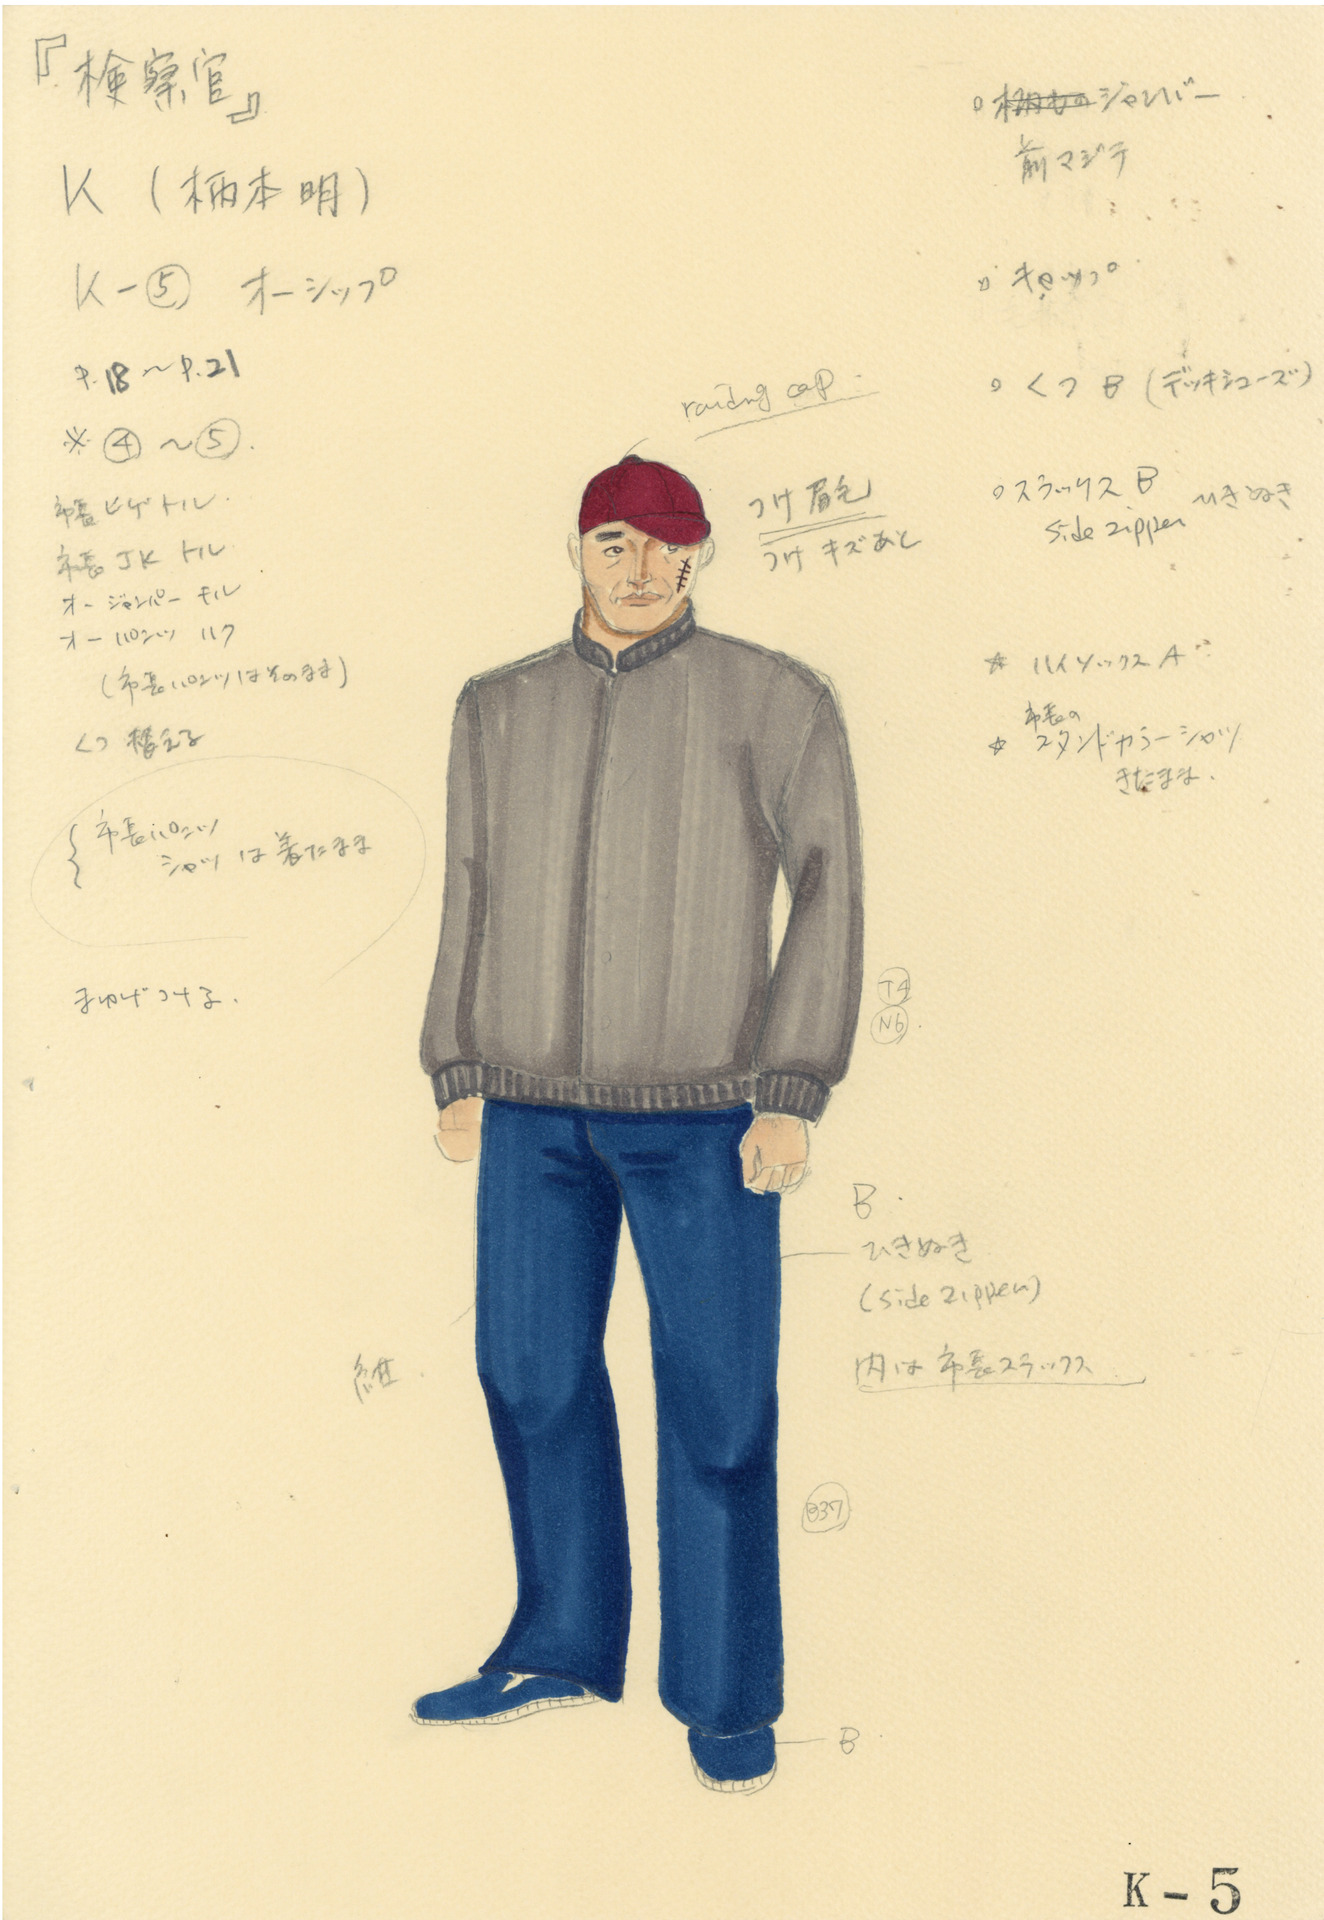 『検察官』
K（柄本明）
K-⑤ オーシップ
P.18～P.21
※④～⑤.
市長ヒゲトル.
市長JKトル
オージャンパーキル
オーパンツハク
(市長パンツはそのまま)
くつ替える
市長パンツ
シャツは着たまま
まゆげつける.
ジャンパー
前マジテ
キャップ
くつB(デッキシューズ)
スラックスB ひきぬき
side zipper
☆ハイソックスA
市長の
☆スタンドカラーシャツ
きたまま.
cap.
つけ眉毛
つけキズあと
T4
N6
B.
ひきぬき
(side zipper)
内は市長スラックス
紺.
B37
B
K-5